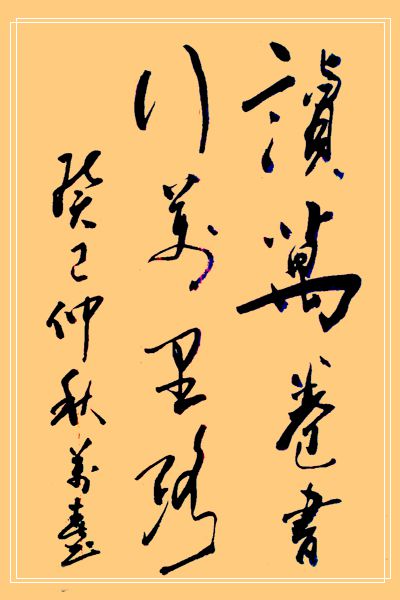 讀萬卷書
行萬里路
癸巳仲秋萬